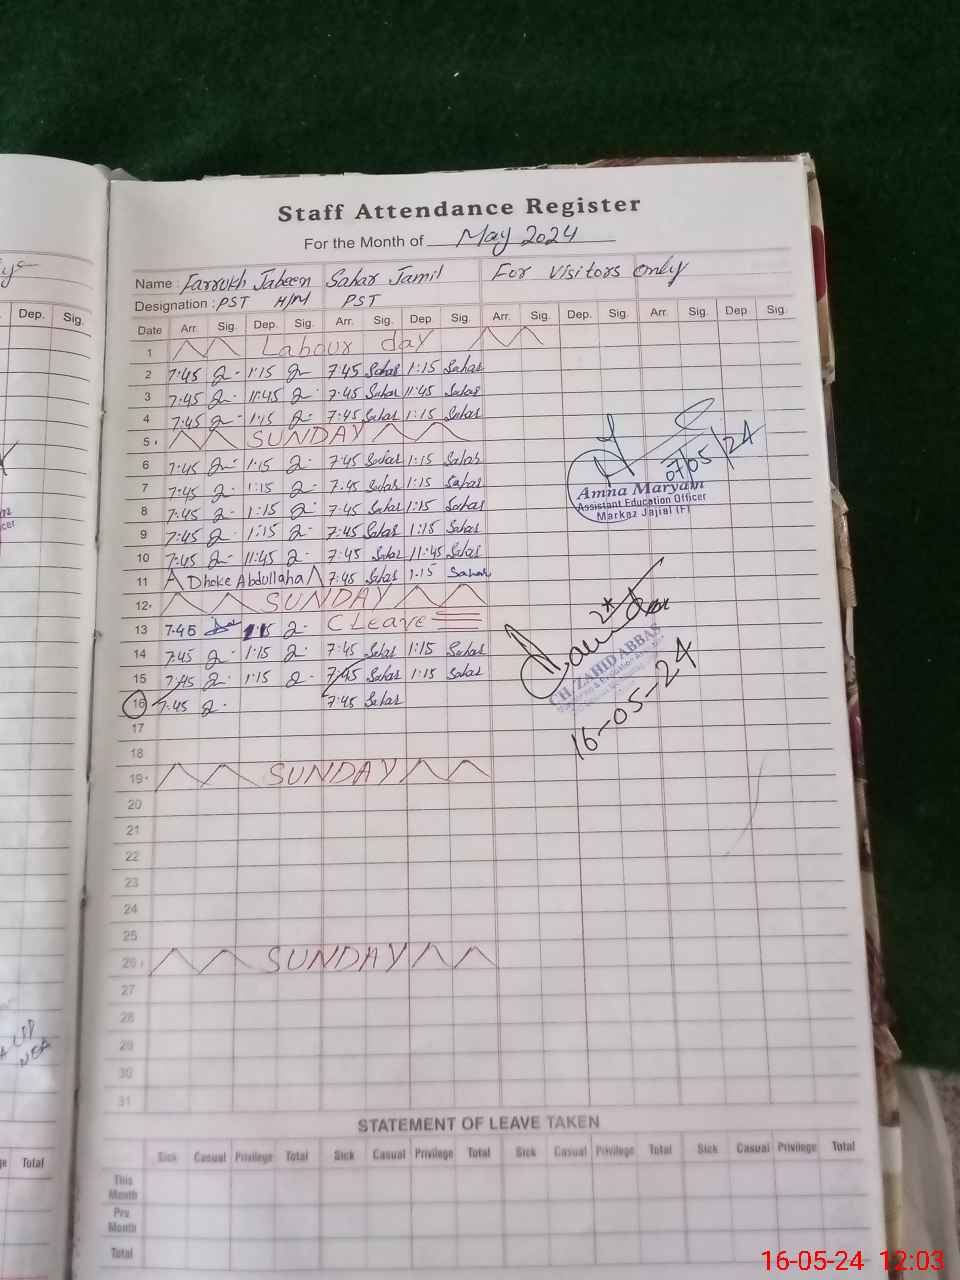 Staff Attendance Register
For the Month of May 2024
Name : Farrukh Jabeen Sahar Jamil For Visitors only
Designation : PST H/M PST
Dep. Sig.
Date Arr. Sig. Dep. Sig. Arr. Sig. Dep. Sig. Arr. Sig. Dep. Sig. Arr. Sig. Dep Sig.
1 Labour day
2 7:45 1:15 7:45 Sahar 1:15 Sahar
3 7:45 11:45 7:45 Sahar 11:45 Sahar
4 7:45 1:15 7:45 Sahar 1:15 Sahar
5 SUNDAY
6 7:45 1:15 7:45 Sahar 1:15 Sahar
7 7:45 1:15 7:45 Sahar 1:15 Sahar
07/05/24
Amna Maryam
Assistant Education Officer
Markaz Jajial (F)
8 7:45 1:15 7:45 Sahar 1:15 Sahar
9 7:45 1:15 7:45 Sahar 1:15 Sahar
10 7:45 11:45 7:45 Sahar 11:45 Sahar
11 Dhoke Abdullaha 7:45 Sahar 1:15 Sahar
12 SUNDAY
13 7:45 1:15 C Leave
14 7:45 1:15 7:45 Sahar 1:15 Sahar
15 7:45 1:15 7:45 Sahar 1:15 Sahar
16 7:45 7:45 Sahar
CH. ZAHID ABBAS
16-05-24
17
18
19 SUNDAY
20
21
22
23
24
25
26 SUNDAY
27
28
29
30
31
STATEMENT OF LEAVE TAKEN
Total
Sick Casual Privilege Total Sick Casual Privilege Total Sick Casual Privilege Total Sick Casual Privilege Total
This Month
Pre Month
Total
16-05-24 12:03